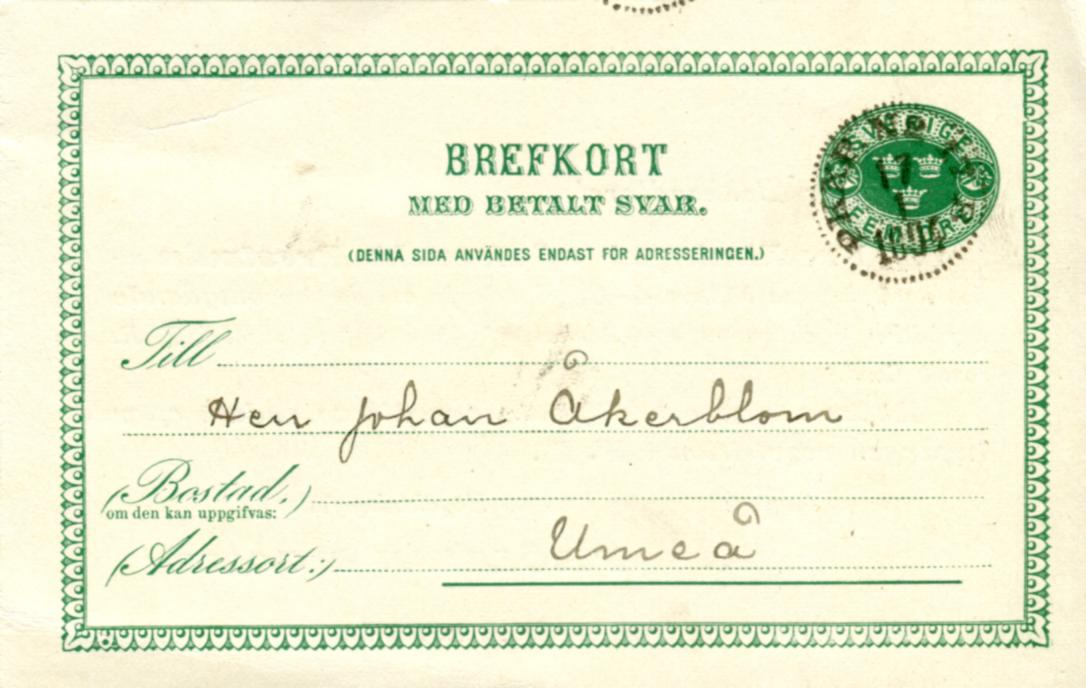 BREFKORT
MED BETALT SVAR.
(DENNA SIDA ANVÄNDES ENDAST FÖR ADRESSERINGEN.)
SVERIGE
FEM ÖRE
17
1
Till
Herr Johan Åkerblom
(Bostad,)
om den kan uppgifvas:
Umeå
(Adressort:)